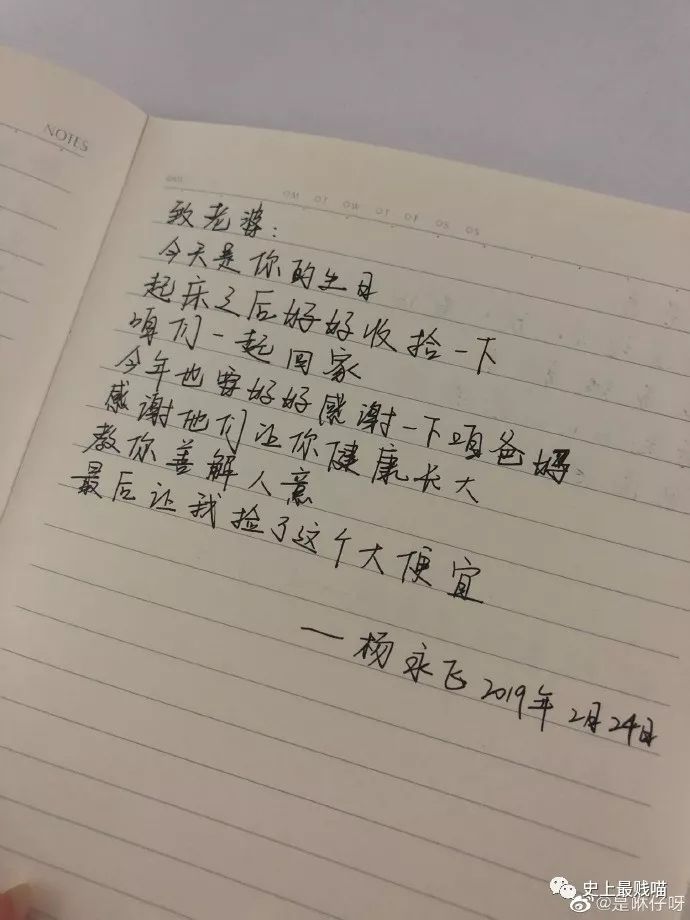 NOTES
致老婆：
今天是你的生日
起床之后好好收拾一下
咱们一起回家
今年也要好好感谢一下咱爸妈
感谢他们让你健康长大
教你善解人意
最后让我捡了这个大便宜
——杨永飞 2019年2月24日
史上最贱喵
@是咻仔呀